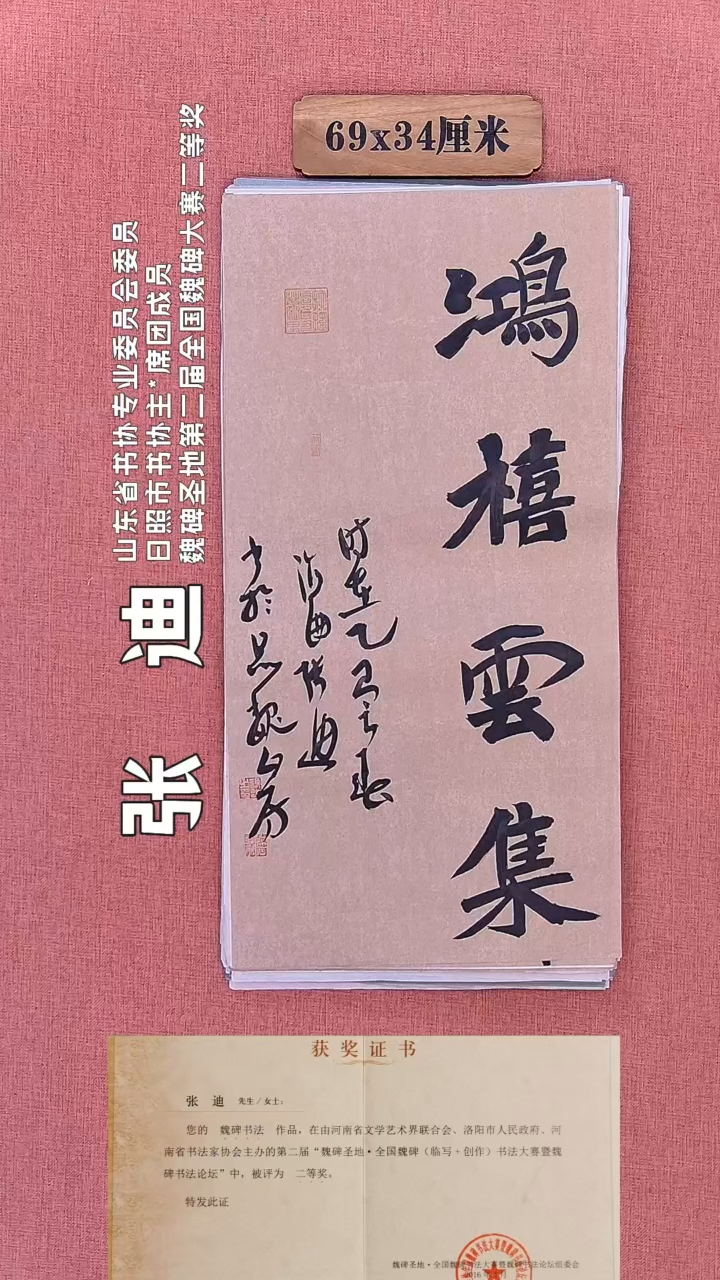 69x34厘米
鸿禧雲集
时在乙巳之春
张迪
山东省书协专业委员会委员
日照市书协主*席团成员
魏碑圣地第二届全国魏碑大赛二等奖
获奖证书
张 迪 先生/女士:
您的 魏碑书法 作品,在由河南省文学艺术界联合会、洛阳市人民政府、河
南省书法家协会主办的第二届“魏碑圣地·全国魏碑(临写+创作)书法大赛暨魏
碑书法论坛”中,被评为 二等奖。
特发此证
魏碑圣地·全国魏碑书法大赛暨魏碑书法论坛组委会